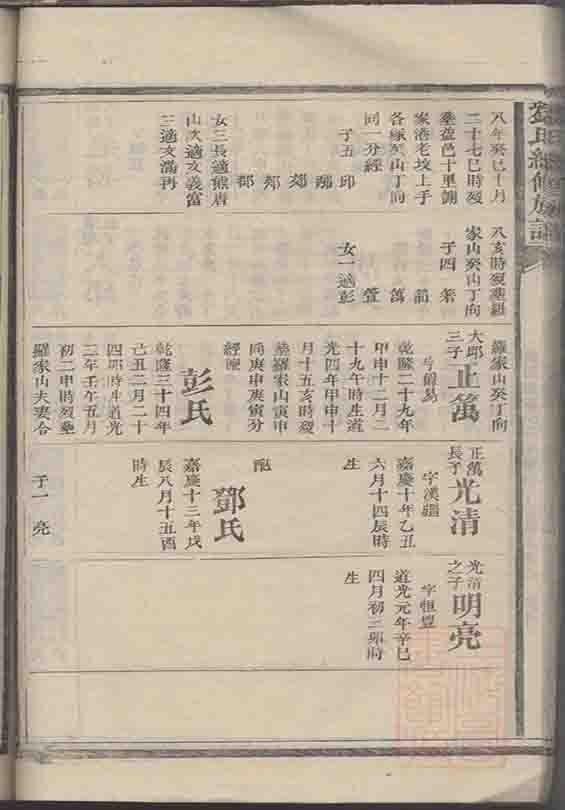 氏續修族譜
八年癸巳十月
二十七巳時歿
塟益邑十里
家港老坟上手
各啄癸山丁向
同一分經
子五 邱
郊
邦
郡
女三長適熊唐
山次適文義富
三適文滿再
八亥時歿塟羅
家山癸山丁向
子四 策
節
萬
萱
女一適彭
羅家山癸丁向
大邱三子 正萬
号爵易
乾隆二十九年
甲申十二月二
十九午時生道
光四年甲申十
月十五亥時歿
塟羅家山寅申
向庚申庚寅分
經
彭氏
乾隆三十四年
己丑二月二十
四卯時生道光
二年壬午五月
初二申時歿塟
羅家山夫妻合
正萬長子 光清
字漢疆
嘉慶十年乙丑
六月十四辰時
生
配
鄧氏
嘉慶十三年戊
辰八月十五酉
時生
子一 亮
光清之子 明亮
字恒豐
道光元年辛巳
四月初三卯時
生